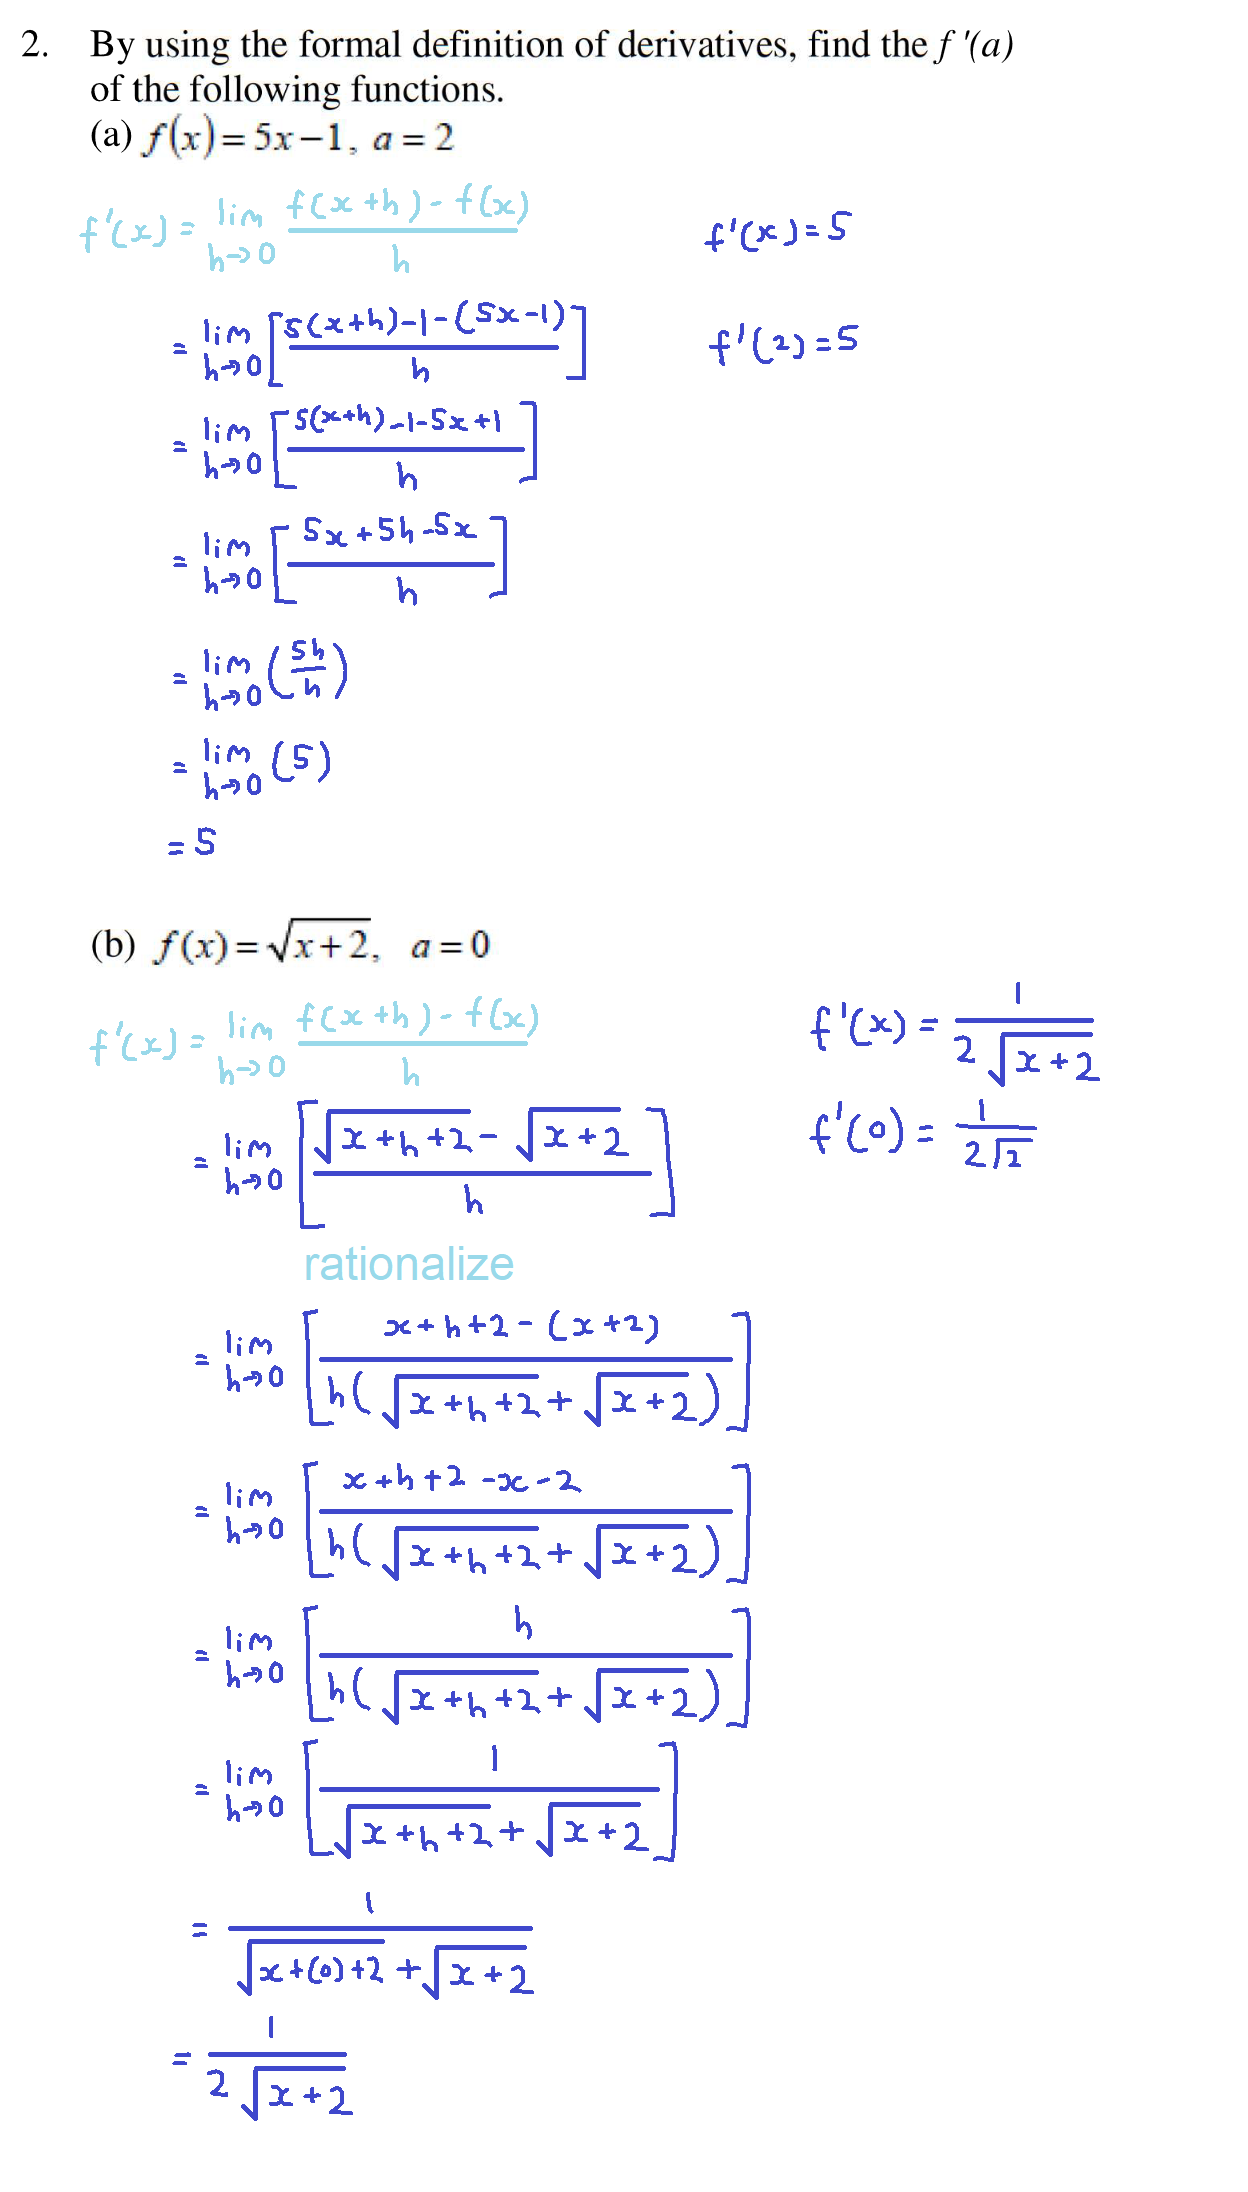 2. By using the formal definition of derivatives, find the f '(a)
of the following functions.
(a) f(x) = 5x−1, a = 2
f'(x) = lim h→0 f(x+h)-f(x) / h
f'(x) = 5
= lim h→0 [5(x+h)-1-(5x-1) / h]
f'(2) = 5
= lim h→0 [5(x+h)-1-5x+1 / h]
= lim h→0 [5x+5h-5x / h]
= lim h→0 (5h / h)
= lim h→0 (5)
= 5
(b) f(x) = √(x+2), a = 0
f'(x) = lim h→0 f(x+h)-f(x) / h
f'(x) = 1 / 2√(x+2)
= lim h→0 [√(x+h+2) - √(x+2) / h]
f'(0) = 1 / 2√2
rationalize
= lim h→0 [x+h+2-(x+2) / h(√(x+h+2) + √(x+2))]
= lim h→0 [x+h+2-x-2 / h(√(x+h+2) + √(x+2))]
= lim h→0 [h / h(√(x+h+2) + √(x+2))]
= lim h→0 [1 / √(x+h+2) + √(x+2)]
= 1 / √(x+(0)+2) + √(x+2)
= 1 / 2√(x+2)